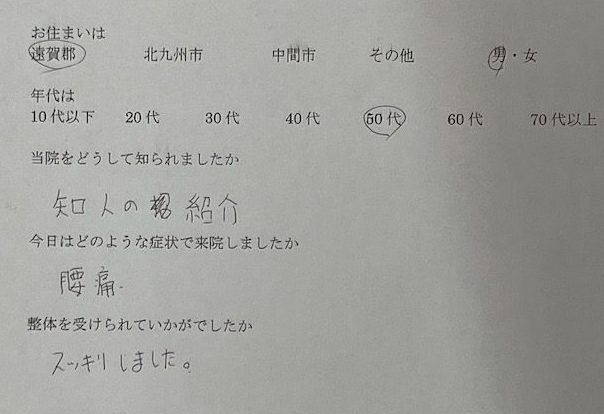 お住まいは
遠賀郡 北九州市 中間市 その他 男・女
年代は
10代以下 20代 30代 40代 50代 60代 70代以上
当院をどうして知られましたか
知人の 紹介
今日はどのような症状で来院しましたか
腰痛.
整体を受けられていかがでしたか
スッキリしました。